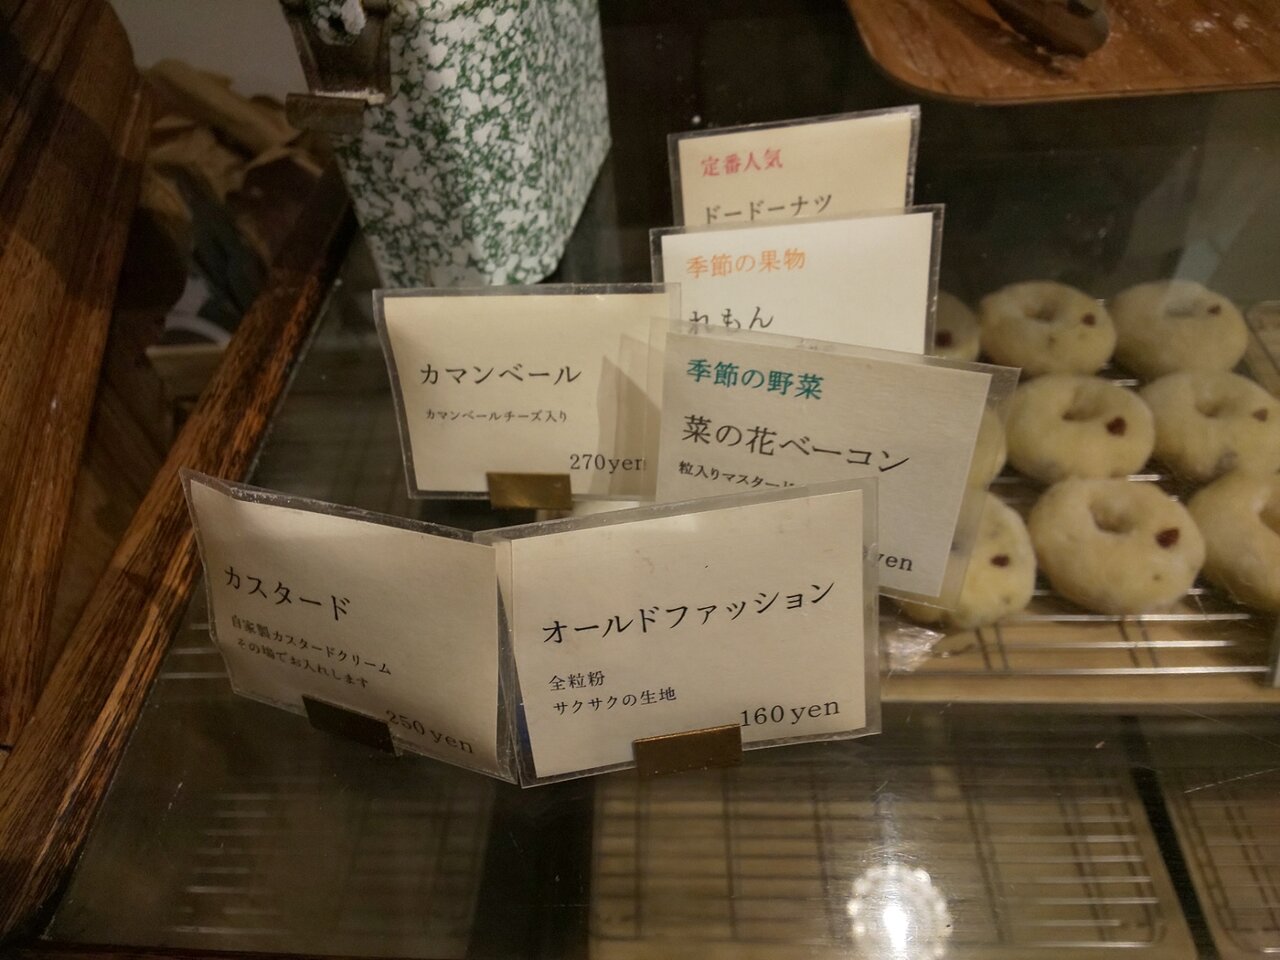 定番人気
ドードーナツ
季節の果物
れもん
カマンベール
カマンベールチーズ入り
270yen
季節の野菜
菜の花ベーコン
粒入りマスタード
yen
カスタード
自家製カスタードクリーム
その場でお入れします
250yen
オールドファッション
全粒粉
サクサクの生地
160yen